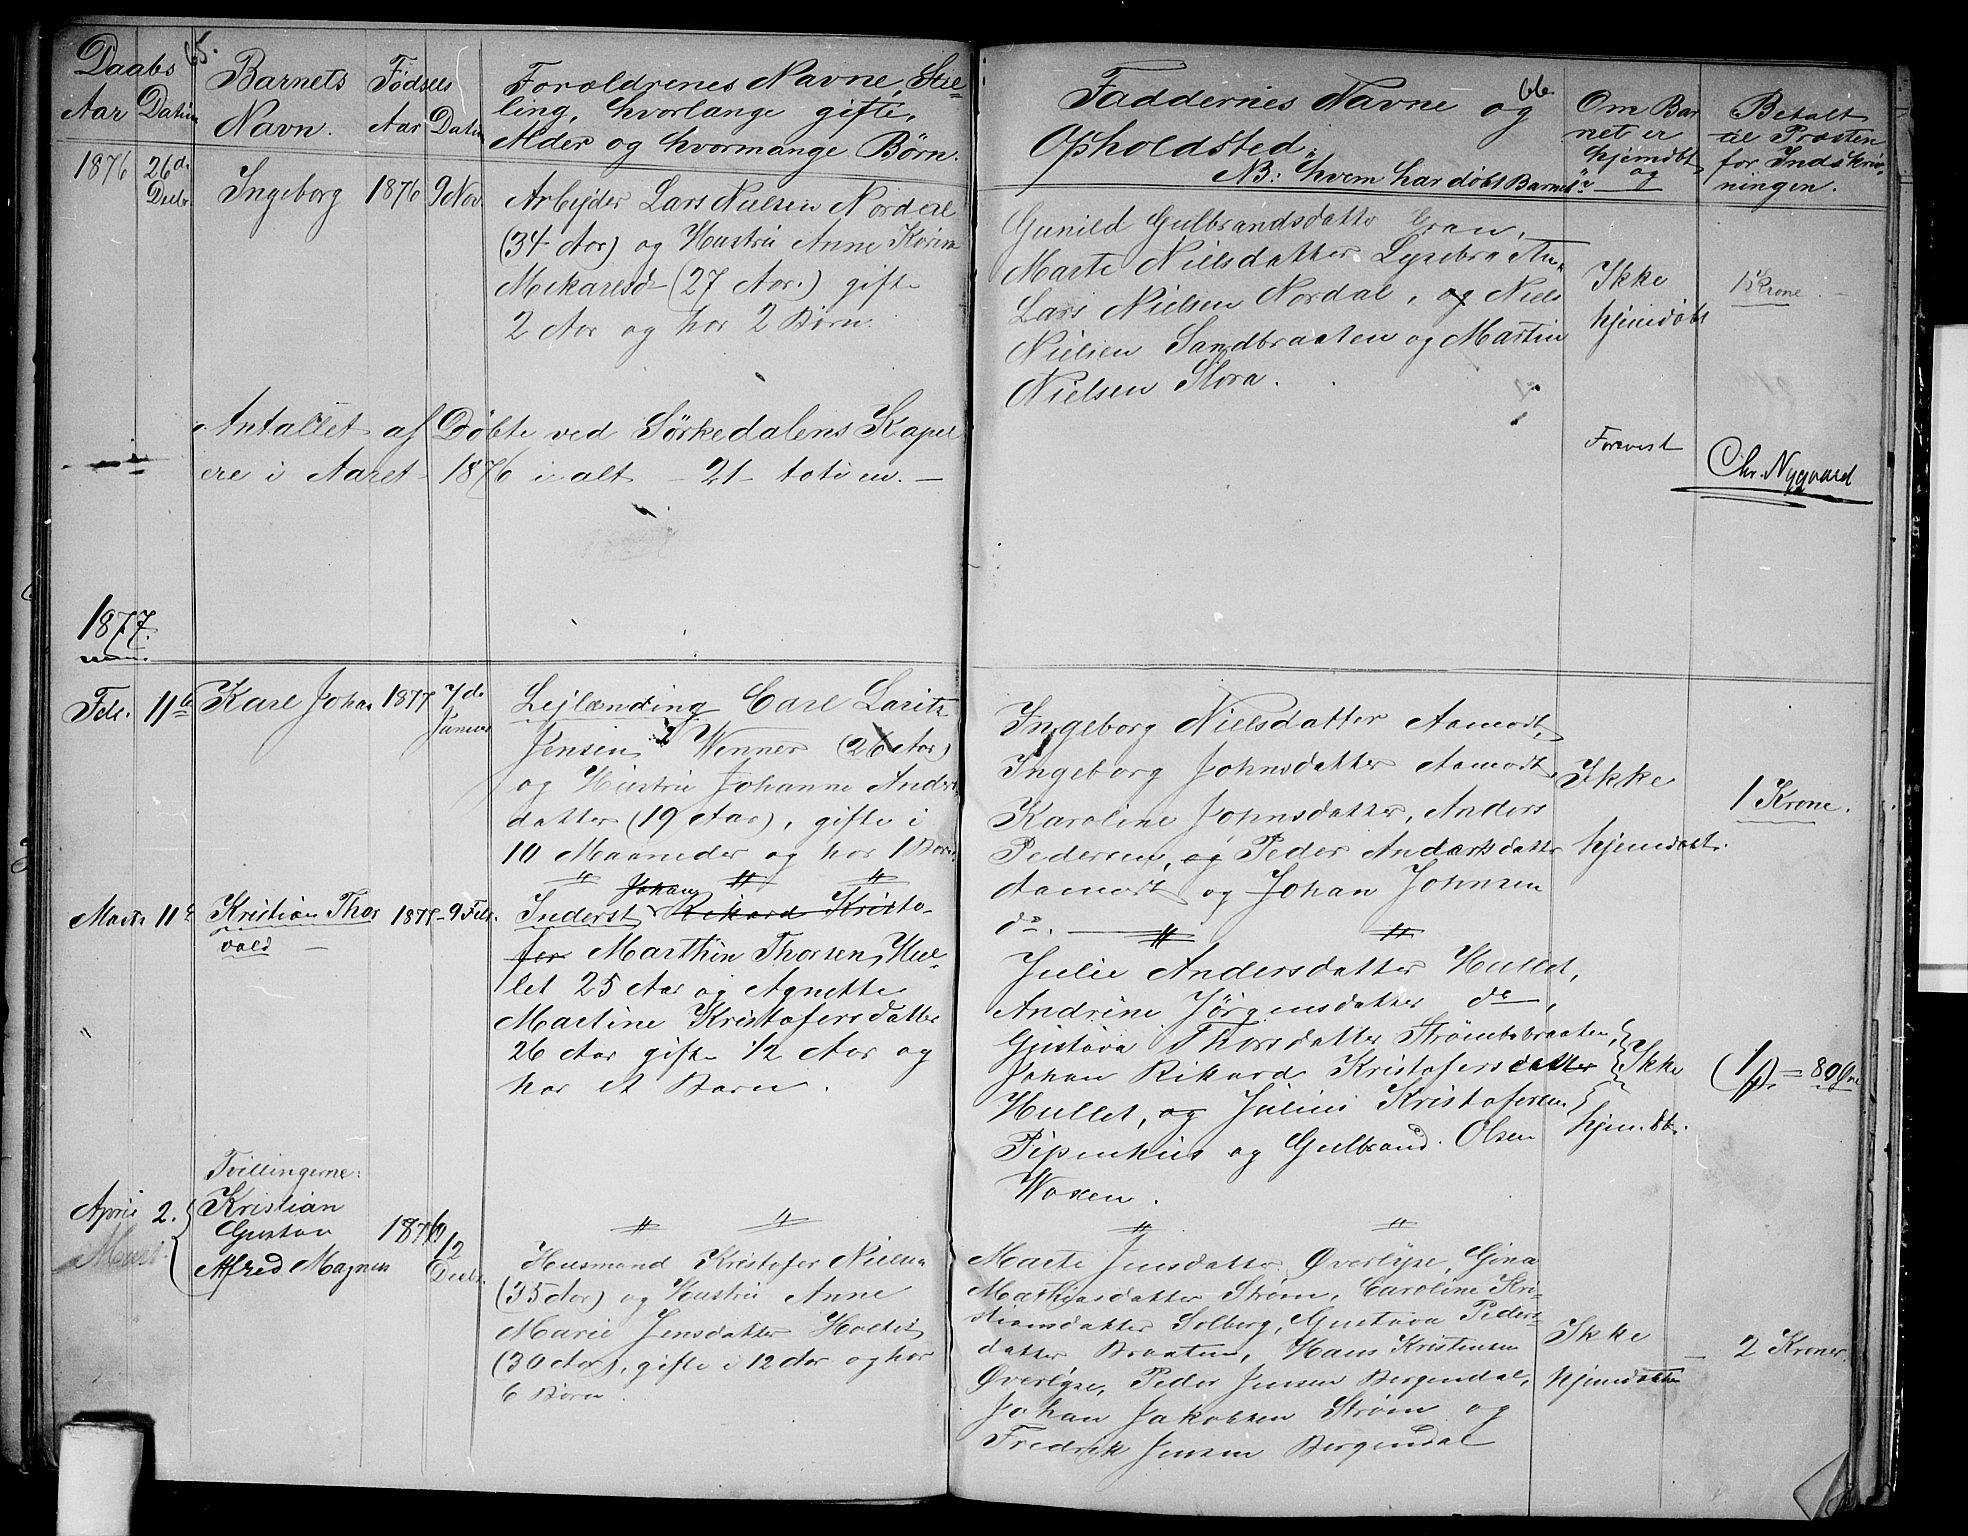 65.
Daabs
Aar Datum
Barnets
Navn.
Fødsels
Aar Datum
Forældrenes Navne, Stil-
ling, hvorlange gifte,
Alder og hvormange Børn.
1876 26de
Decbr
Ingeborg 1876 9 Nov.
Arbejder Lars Nielsen Nordal
(34 Aar) og Hustru Anne Karin
(27 Aar.) gift
2 Aar og har 2 Børn.
Antallet af Døbte ved Sørkedalens Kapel
ere i Aaret 1876 i alt - 21 - toti en. -
1877.
Febr. 11te Karl Johan 1877 7de
Januar
Lejlænding Carl Laritz
Jensen Wenner (26 Aar)
og Hustru Johanne Anders-
datter (19 Aar), gifte i
10 Maaneder og har 1 Barn.
Marts 11te Kristian Thor
vald
1877 9 Febr.
Johan
Inderst Rikard Kristo-
fer Marthin Thorsen, Hul-
let 25 Aar og Agnette
Martine Kristofersdatter
26 Aar gift 1/2 Aar og
har et Barn.
Tvillingerne:
April 2. Kristian
Gustav
Alfred Magnus
1876
12
Decbr.
Husmand Kristofer Nielsen
(35 Aar) og Hustru Anne
Marie Jensdatter Holtet
(30 Aar), gifte i 12 Aar og har
6 Børn.
66.
Faddernes Navne og
Opholdsted.
NB: Hvem har døbt Barnet?
Om Bar
net er
hjemdøbt
og
Betalt
til Præsten
for Indskriv-
ningen.
Gunild Gulbrandsdatter Gran,
Marte Nielsdatter
Lars Nielsen Nordal, og Niels
Nielsen Sandbraaten og Martin
Nielsen Stora.
Ikke
hjemdøbt
1 Krone
Forevist
Chr. Nygaard
Ingeborg Nielsdatter Aamodt,
Ingeborg Johnsdatter Aamodt,
Karoline Johnsdatter, Anders
Pedersen, og Peder Andersdatter
Aamodt og Johan Johnsen
do.
Ikke
hjemdøbt.
1 Krone.
Julie Andersdatter Hullet,
Andrine Jørgensdatter do,
Gustava Thorsdatter Strømsbraaten,
Johan Rikard Kristofersdatter
Hullet, og Julius Kristofersen
Pipenhus og Gulbrand Olsen
Woxen.
Ikke
hjemdøbt.
= 80 Øre
Marte Jensdatter Øverlyse, Gina
Mathiasdatter Strøm, Caroline Kri-
stiansdatter Solberg, Gustava Peders-
datter Braaten, Hans Kristensen
Øverlyse, Peder Jensen Bergendal,
Johan Jakobsen Strøm og
Fredrik Jensen Bergendal
Ikke
hjemdøbte
2 Kroner.